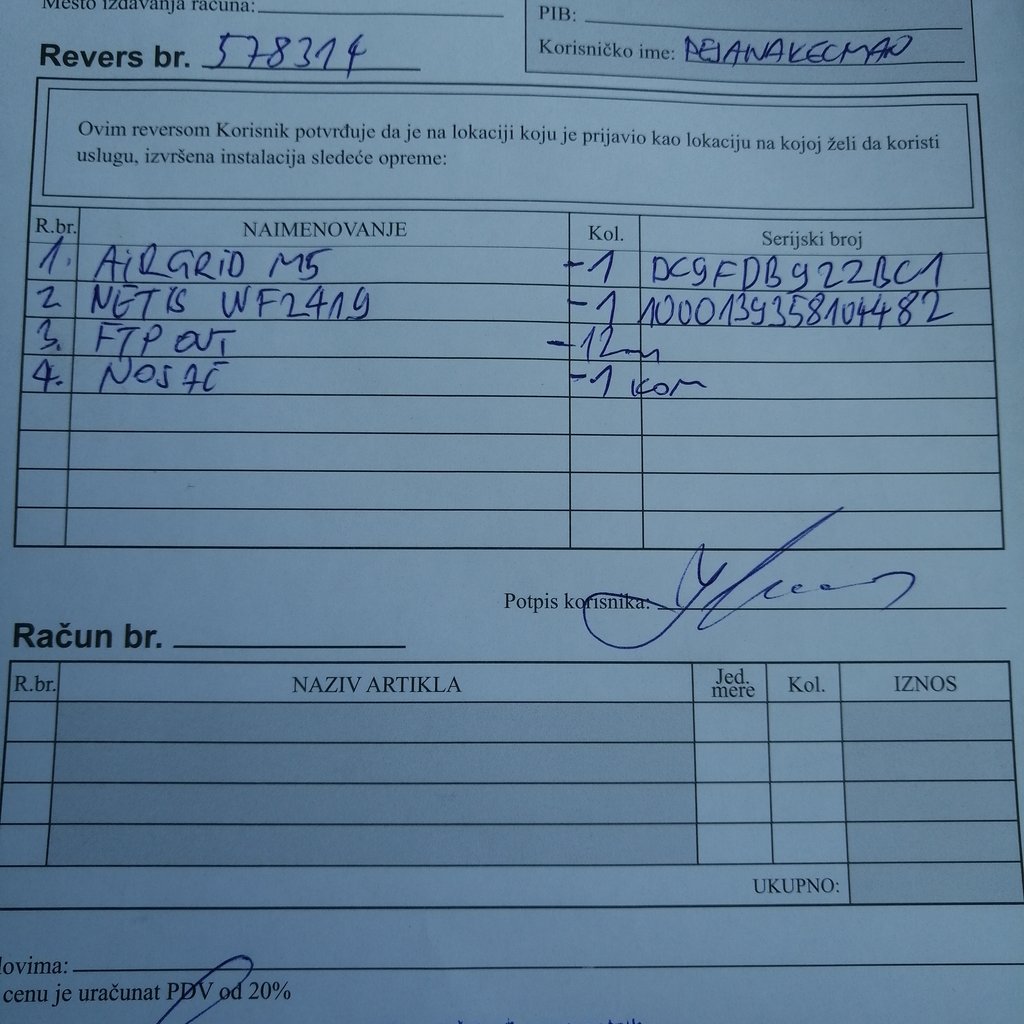 Mesto izdavanja računa:
PIB:
Revers br. 578314
Korisničko ime: DEJANAKECMAN
Ovim reversom Korisnik potvrđuje da je na lokaciji koju je prijavio kao lokaciju na kojoj želi da koristi
uslugu, izvršena instalacija sledeće opreme:
R.br. NAIMENOVANJE Kol. Serijski broj
1. AIRGRID M5 -1 DC9FDB922BC1
2. NETIS WF2419 -1 1000139358104482
3. FTP OUT -12m
4. NOSAČ -1 KOM
Potpis korisnika:
Račun br.
R.br. NAZIV ARTIKLA Jed. mere Kol. IZNOS
UKUPNO:
lovima:
cenu je uračunat PDV od 20%